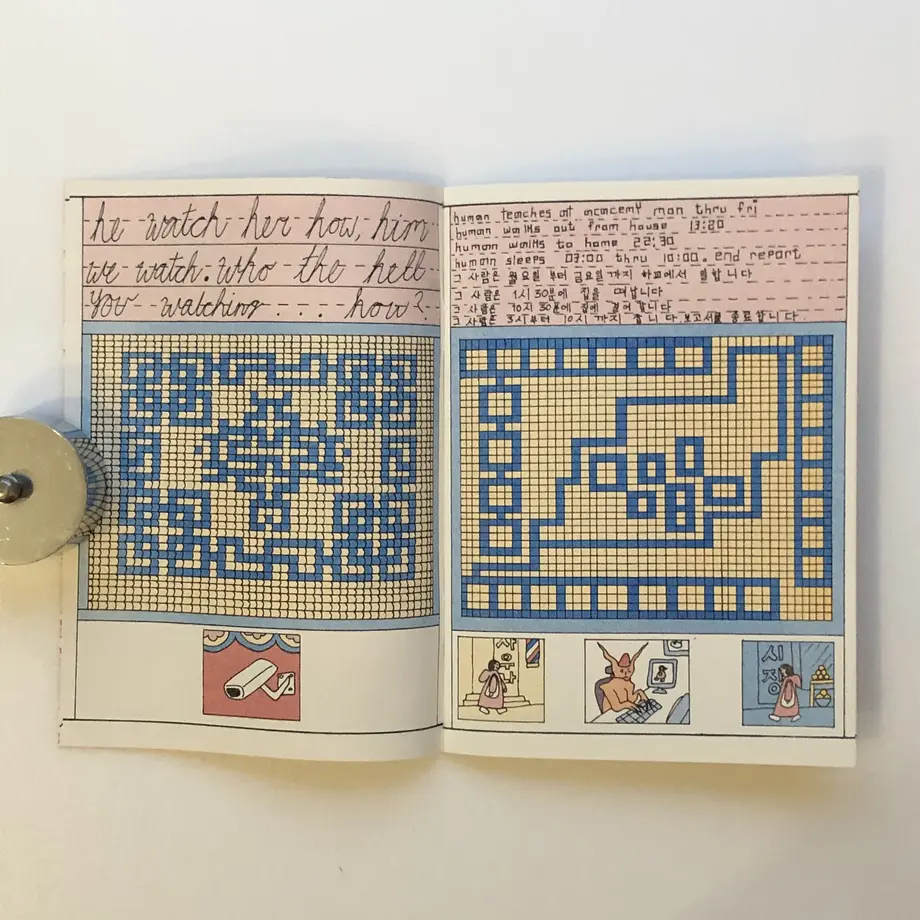 he watch her how, him
we watch. who the hell
you watching .... how?
human teaches at acacemy mon thru fri
human walks out from house 13:20
human walks to home 22:30
human sleeps 03:00 thru 10:00. end report
그 사람은 월요일 부터 금요일까지 학교에서 일합니다
그 사람은 1시 30분에 집을 떠납니다
그 사람은 10시 30분에 집에 걸어 갑니다
그 사람은 3시부터 10시 까지 잡니다 보고서를 종료합니다.
사우나
시장